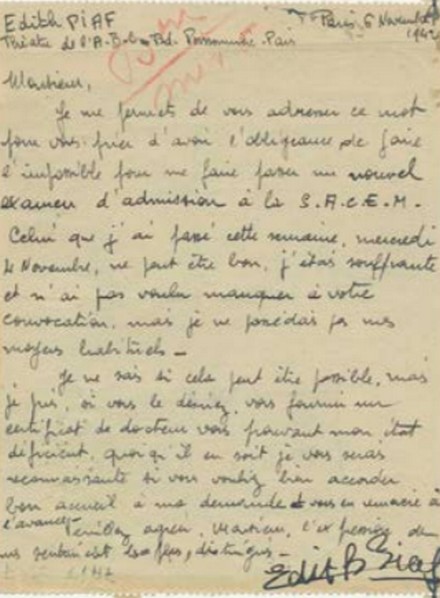 Edith PIAF
Théatre de l'A.B.C. Bd. Poissonnière. Paris
Paris 6 Novembre
1942
Monsieur,
Je me permets de vous adresser ce mot
pour vous prier d'avoir l'obligeance de faire
l'impossible pour me faire passer un nouvel
examen d'admission à la S.A.C.E.M.
Celui que j'ai passé cette semaine, mercredi
4 Novembre, ne peut être bon, j'étais souffrante
et n'ai pas voulu manquer à votre
convocation, mais je ne possédais pas mes
moyens habituels _
Je ne sais si cela peut être possible, mais
je puis, si vous le désirez, vous fournir un
certificat de docteur vous prouvant mon état
déficient, quoiqu'il en soit je vous serais
reconnaissante si vous vouliez bien accorder
bon accueil à ma demande et vous en remercie à
l'avance _
Veuillez agréer, Monsieur, l'expression de
mes sentiments les plus distingués _
Edith Piaf